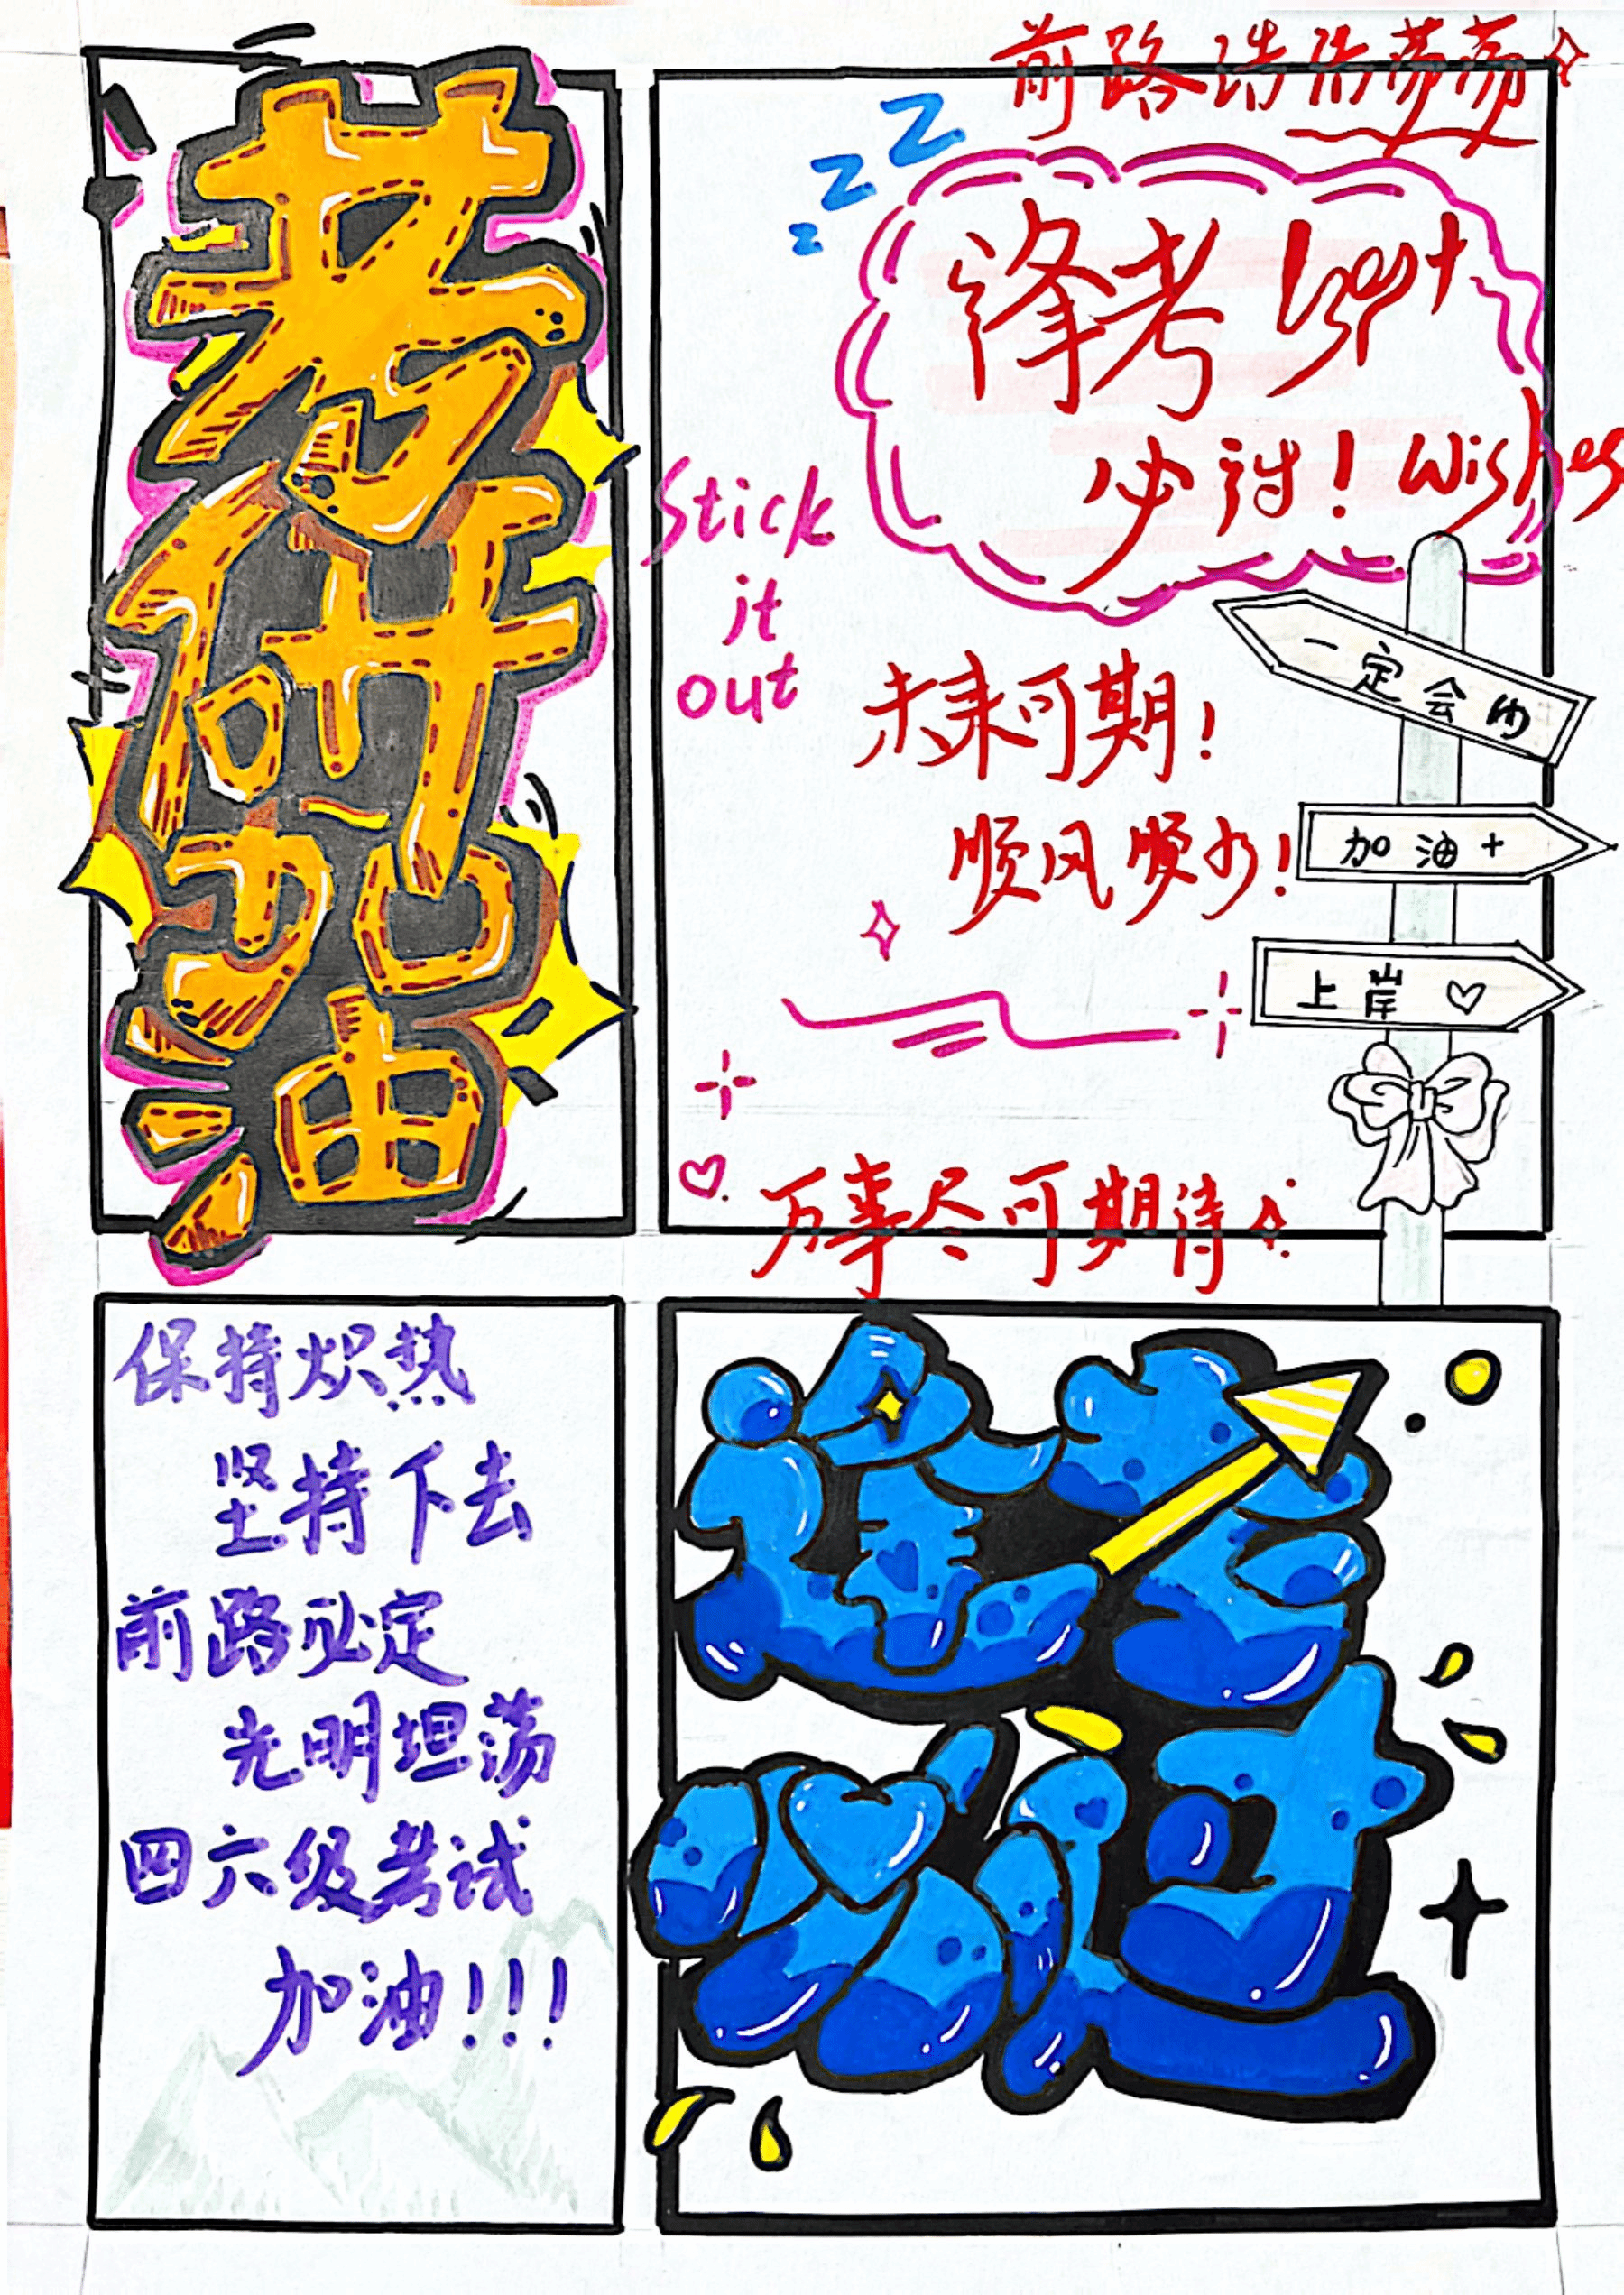 考研加油
前路浩浩荡荡
逢考 best
必过! wishes
Stick
it
out
未来可期!
顺风顺水!
一定会的
加油+
上岸♡
万事尽可期待
保持炽热
坚持下去
前路必定
光明坦荡
四六级考试
加油!!!
逢考
必过